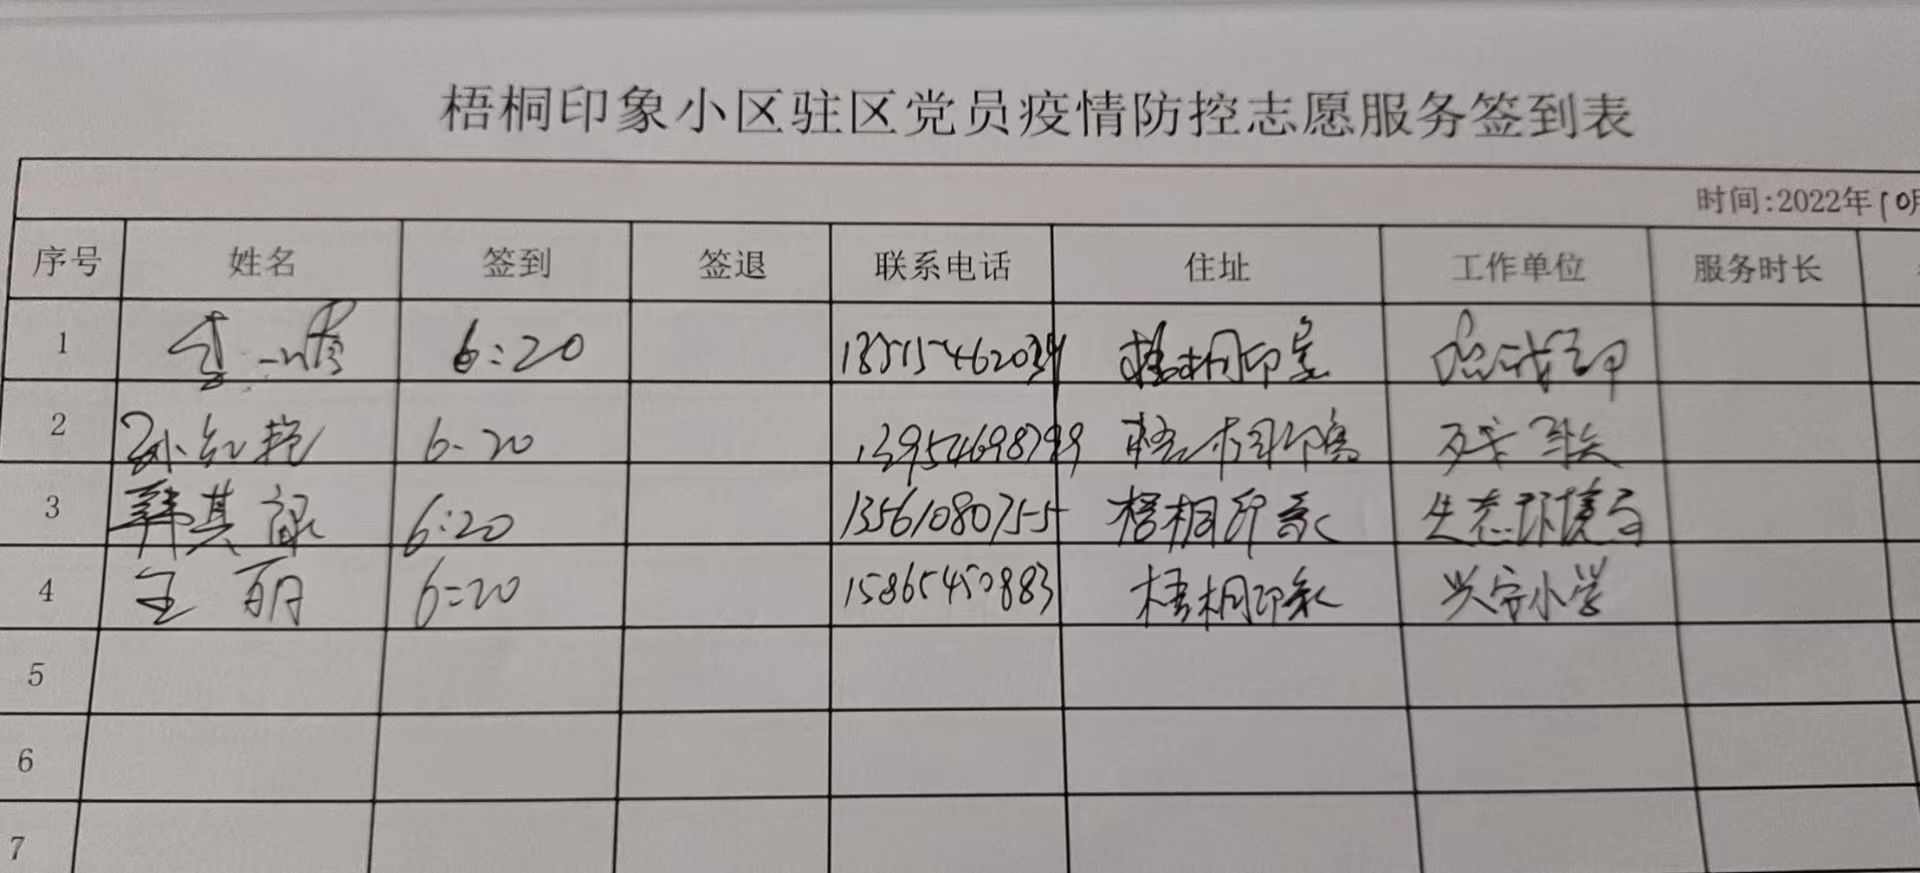 梧桐印象小区驻区党员疫情防控志愿服务签到表
时间:2022年10月
序号 姓名 签到 签退 联系电话 住址 工作单位 服务时长
1 6:20 梧桐印象
2 孙红艳 6:20 梧桐印象 残联
3 韩其禄 6:20 13561080755 梧桐印象 生态环境局
4 王丽 6:20 15865450883 梧桐印象 兴安小学
5
6
7